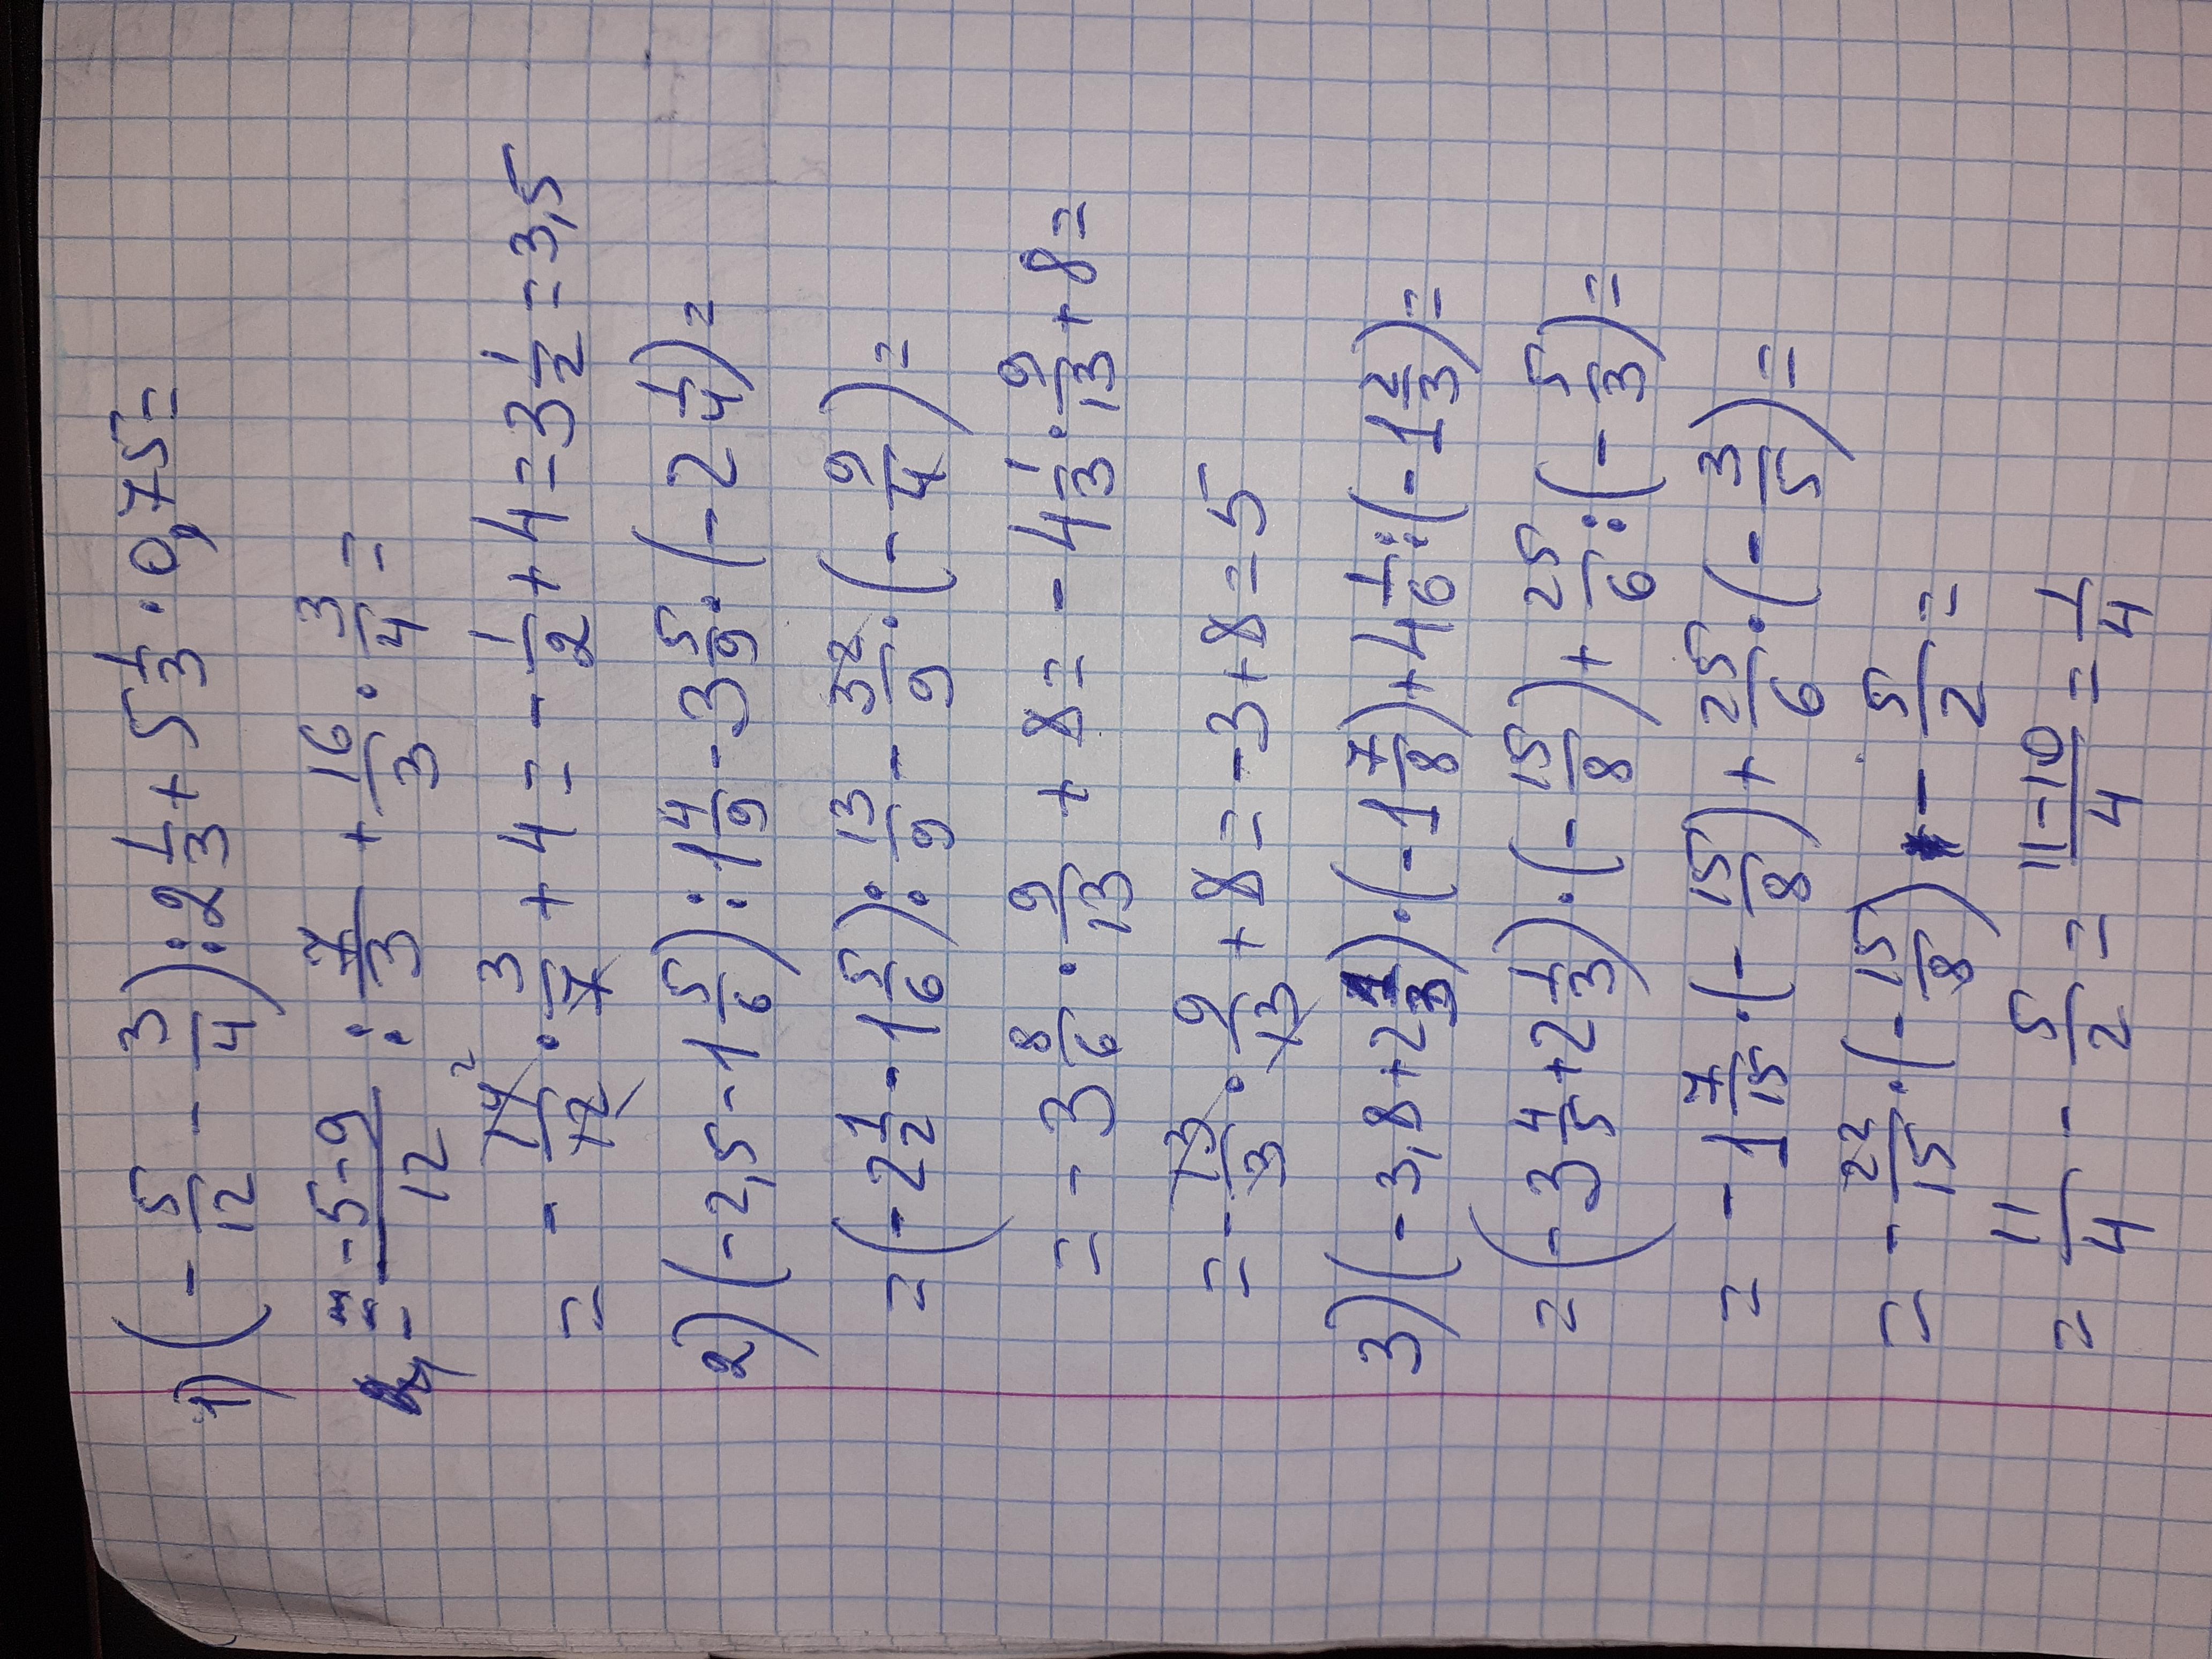 1) (- 5/12 - 3/4) : 2 1/3 + 5 1/3 · 0,75 =
= (-5-9)/12 : 7/3 + 16/3 · 3/4 =
= - 14/12 · 3/7 + 4 = - 1/2 + 4 = 3 1/2 = 3,5
2) (-2,5 - 1 5/6) : 1 4/9 - 3 5/9 · (-2 1/4) =
= (-2 1/2 - 1 5/6) : 13/9 - 32/9 · (- 9/4) =
= - 3 8/6 · 9/13 + 8 = - 4 1/3 · 9/13 + 8 =
= - 13/3 · 9/13 + 8 = -3 + 8 = 5
3) (-3,8 + 2 1/3) · (-1 7/8) + 4 1/6 : (-1 2/3) =
= (-3 4/5 + 2 1/3) · (- 15/8) + 25/6 : (- 5/3) =
= - 1 7/15 · (- 15/8) + 25/6 · (- 3/5) =
= - 22/15 · (- 15/8) - 5/2 =
= 11/4 - 5/2 = (11-10)/4 = 1/4